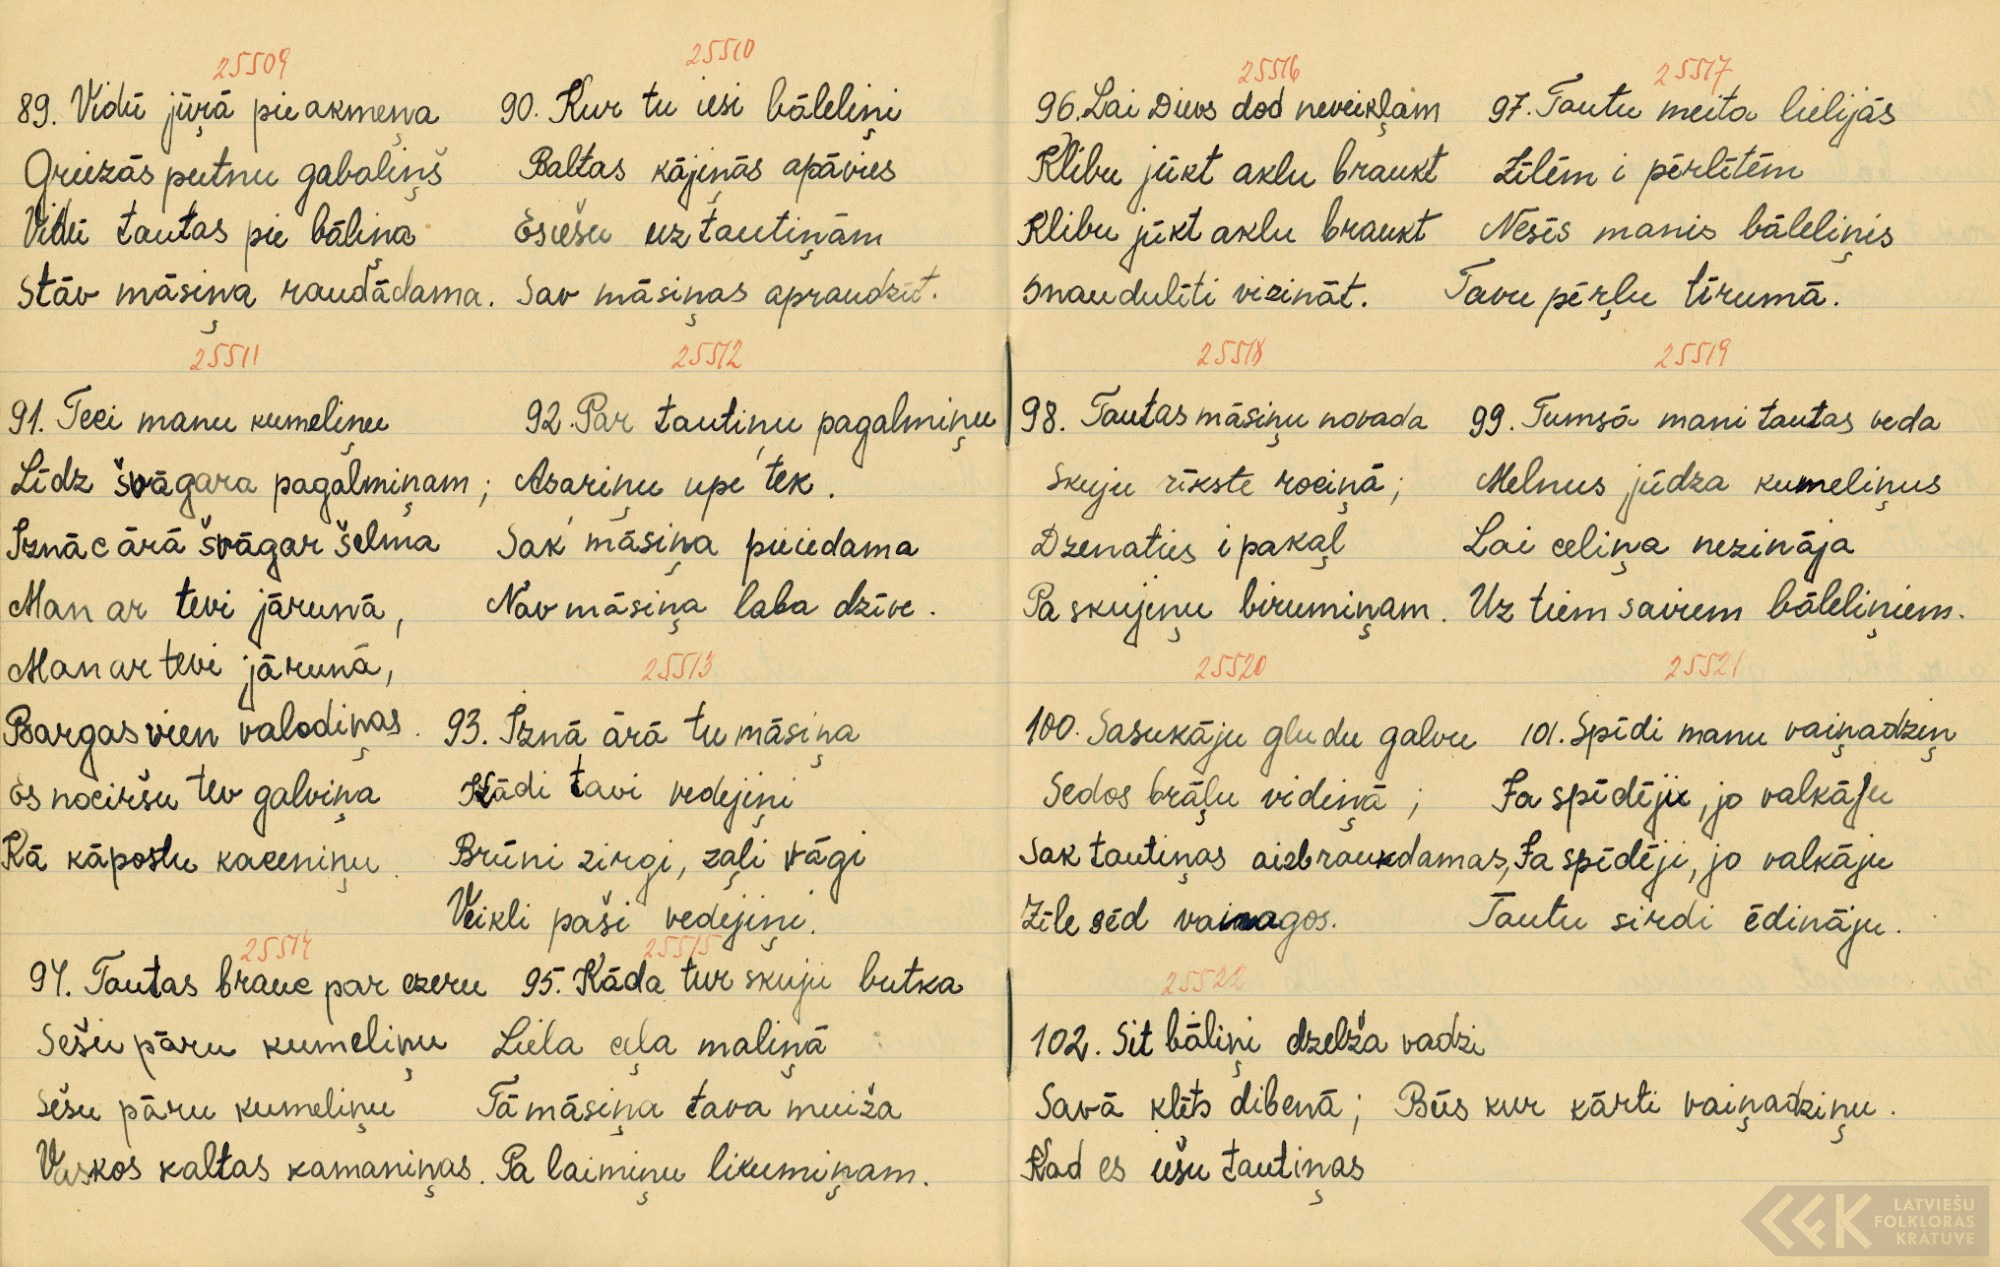 25509
89. Vidū jūŗā pie akmeņa
Griezās putnu gabaliņš
Vidū tautas pie bāliņa
Stāv māsiņa raudādama.
25510
90. Kur tu iesi bāleliņi
Baltas kājiņās apāvies
Es iešu uz tautiņām
Sav māsiņas apraudzīt.
25511
91. Teci manu kumeliņu
Līdz švāgara pagalmiņam;
Iznāc ārā švāgar šelma
Man ar tevi jārunā,
Man ar tevi jārunā,
Bargas vien valodiņas.
Es nociršu tev galviņa
Kā kāpostu kaceniņu.
25512
92. Par tautiņu pagalmiņu
Asariņu upe tek.
Sak māsiņa pieiedama
Nav māsiņa laba dzīve.
25513
93. Iznā ārā tu māsiņa
Kādi tavi vedejiņi
Brūni zirgi, zaļi vāgi
Veikli paši vedejiņi.
25514
94. Tautas brauc par ezeru
Sešu pāru kumeliņu
Sešu pāru kumeliņu
Vaskos kaltas kamaniņas.
25515
95. Kāda tur skuju butka
Liela ceļa maliņā
Tā māsiņa tava muiža
Pa laimiņu likumiņam.
25516
96. Lai Dievs dod neveikļam
Klibu jūkt aklu braukt
Klibu jūkt aklu braukt
Snaudulīti vizināt.
25517
97. Tautu meita lielijās
Zīlēm i pērlītēm
Nesīs manis bāleliņis
Tavu pērļu tīrumā.
25518
98. Tautas māsiņu novada
Skuju rīkste rociņā;
Dzenaties i pakaļ
Pa skujiņu birumiņam.
25519
99. Tumsā mani tautas veda
Melnus jūdza kumeliņus
Lai celiņa nezināja
Uz tiem saviem bāleliņiem.
25520
100. Sasukāju gludu galvu
Sedos brāļu vidiņā;
Sak tautiņas aizbraukdamas,
Zīle sēd vainagos.
25521
101. Spīdi manu vaiņadziņ
Ja spīdēji, jo valkāju
Ja spīdēji, jo valkāju
Tautu sirdi ēdināju.
25522
102. Sit bāliņi dzelža vadzi
Savā klēts dibenā; Būs kur kārti vaiņadziņu.
Kad es iešu tautiņas
LATVIEŠU
FOLKLORAS
KRĀTUVE